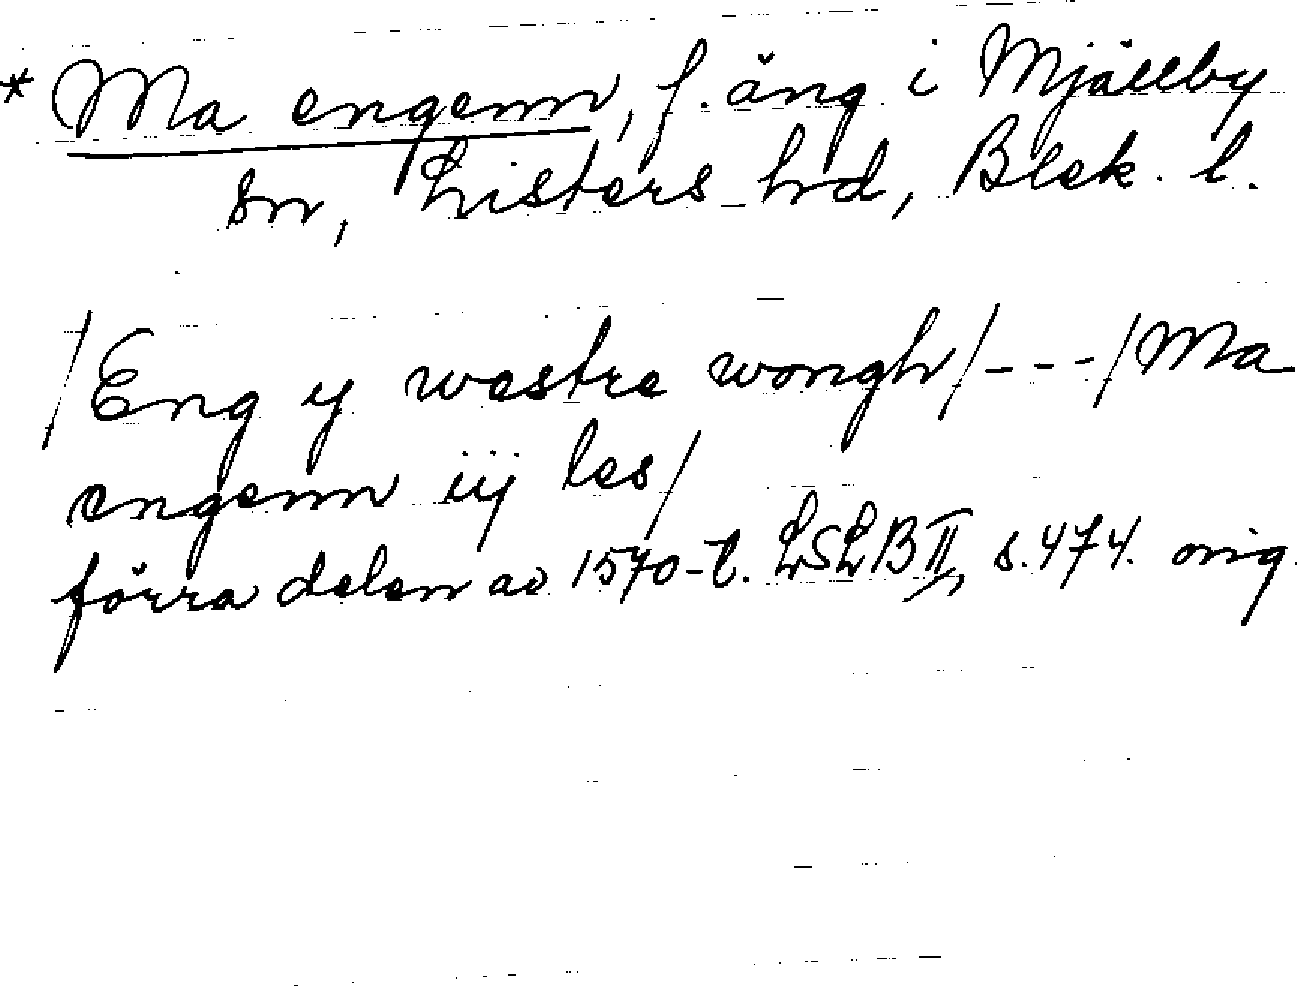 * Ma engenn, f. äng i Mjällby
sn, Listers hd, Blek. l.
/Eng y westre wongh/---/Ma
engenn iij les/
förra delen av 1570-t. LSLB II, s. 474. orig.